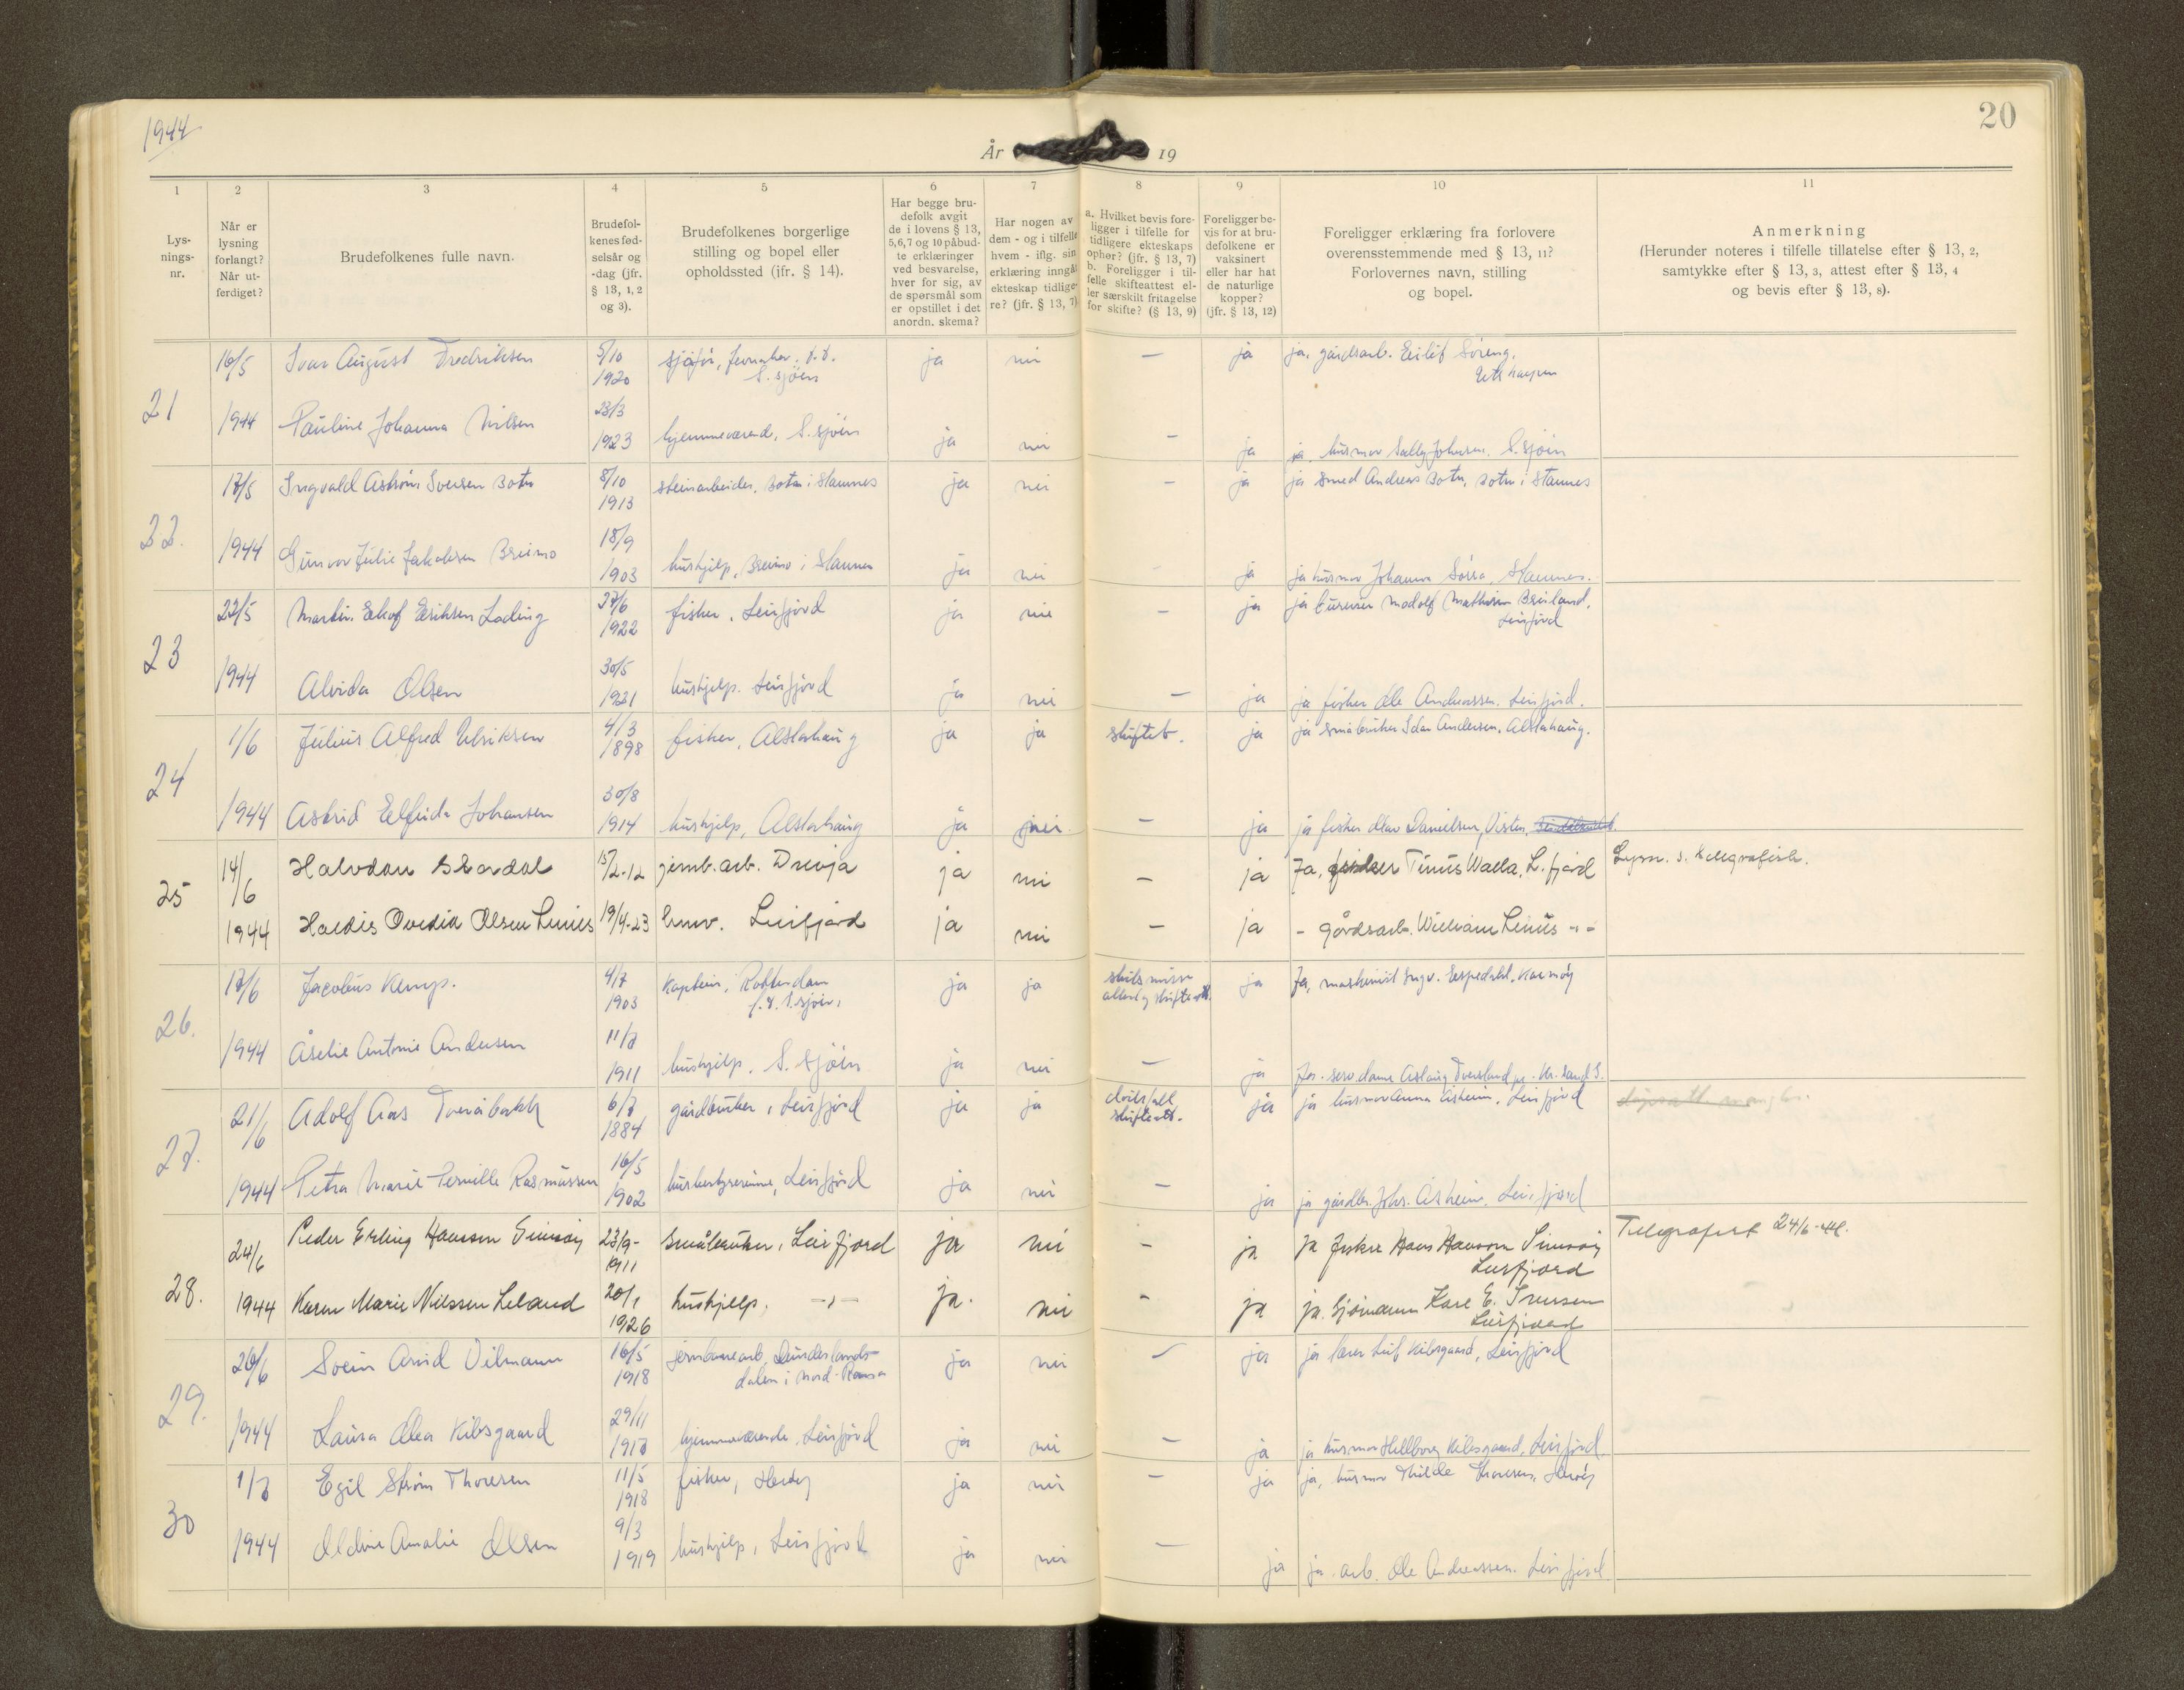 1944
20
År 19
1
2
3
4
5
6
7
8
9
10
11
Lys-
nings-
nr.
Når er
lysning
forlangt?
Når ut-
ferdiget?
Brudefolkenes fulle navn.
Brudefol-
kenes fød-
selsår og
-dag (jfr.
§ 13, 1, 2
og 3).
Brudefolkenes borgerlige
stilling og bopel eller
opholdssted (ifr. § 14).
Har begge bru-
defolk avgit
de i lovens § 13,
5,6,7 og 10 påbud-
te erklæringer
ved besvarelse,
hver for sig, av
de spørsmål som
er opstillet i det
anordn. skema?
Har nogen av
dem - og i tilfelle
hvem - iflg. sin
erklæring inngåt
ekteskap tidlige-
re? (jfr. § 13, 7)
a. Hvilket bevis fore-
ligger i tilfelle for
tidligere ekteskaps
ophør? (jfr. § 13, 7)
b. Foreligger i til-
felle skifteattest el-
ler særskilt fritagelse
for skifte? (§ 13, 9)
Foreligger be-
vis for at bru-
defolkene er
vaksinert
eller har hat
de naturlige
kopper?
(jfr. § 13, 12)
Foreligger erklæring fra forlovere
overensstemmende med § 13, 11?
Forlovernes navn, stilling
og bopel.
Anmerkning
(Herunder noteres i tilfelle tillatelse efter § 13, 2,
samtykke efter § 13, 3, attest efter § 13, 4
og bevis efter § 13, 8).
21
16/5 Ivar August Fredriksen 5/10 1920 ja nei — ja ja, gårdsarb. Eilif Søreng,
S. sjøen
1944 Pauline Johanna Nilsen 23/3 1923 hjemmeværende, S. sjøen ja nei — ja ja, husmor Sally Johansen, S. sjøen
22.
17/5 Ingvald Astrøm Sversen Botn 8/10 1913 steinarbeider, Botn i Stamnes ja nei — ja ja smed Andreas Botn, Botn i Stamnes
1944 Gunvor Julie Jakobsen Breimo 18/9 1903 hushjelp, Breimo i Stamnes ja nei ja ja husmor Johanna Sørra, Stamnes.
23
22/5 Martin Ekof Eriksen Lading 27/6 1922 fisker, Leirfjord ja nei — ja ja Modolf Mathisen Breiland,
Leirfjord
1944 Alvida Olsen 30/5 1921 hushjelp. Leirfjord ja nei — ja ja fisker Ole Andreassen, Leirfjord.
24
1/6 Julius Alfred Ulriksen 4/3 1898 fisker, Alstahaug ja ja skiftet. ja ja småbruker Idar Andersen, Alstahaug.
1944 Astrid Elfrida Johansen 30/8 1914 hushjelp, Alstahaug ja nei — ja ja fisker Olav Danielsen, Visten,
25
14/6 Halvdan Skardal 15/2-12 jernb.arb. Drevja ja nei — ja Ja, fisker Tinus Walla, L. fjord Lysn. s. telegrafisk.
1944 Haldis Ovedia Olsen Leines 19/4-23 hmv. Leirfjord ja nei — ja - gårdsarb. William Leines -"-
26.
17/6 Jacobus Kemp. 4/7 1903 kaptein, Rotterdam ja ja skilsmisse ja Ja, maskinist Ingv. Espedahl, Karmøy
f. t. S. sjøen, attest og skifteatt.
1944 Åselie Antonie Andersen 11/7 1911 hushjelp. S. sjøen ja nei — ja Ja. serv.dame Aslaug Tversland, pr. Kr. Sand S.
27.
21/6 Adolf Aas Tveråbakk 6/7 1884 gårdbruker, Leirfjord ja ja dødsfall ja ja husmor Anna Åsheim, Leirfjord dåpsatt. mangler.
skifteatt.
1944 Petra Marie Pernille Rasmussen 16/5 1902 husbestyrerinne, Leirfjord ja nei — ja ja gårdbr. Johs. Åsheim, Leirfjord
28.
24/6 Peder Erling Hansen Simsøy 23/9- 1911 Småbruker, Leirfjord ja nei — ja ja fisker Hans Hansen Simsøy Telegrafert 24/6-44.
Leirfjord
1944 Karen Marie Nilssen Leland 20/1 1926 hushjelp, -"- ja. nei - ja ja. Sjømann Kåre E. Iversen
Leirfjord
29.
26/6 Svein Arvid Vilmann 16/5 1918 jernbanearb. Dunderlands- ja nei — ja ja lærer Leif Kibsgaard, Leirfjord
dalen i Nord-Rana
1944 Laura Olea Kibsgaard 29/11 1917 hjemmeværende, Leirfjord ja nei — ja ja husmor Hellborg Kibsgaard, Leirfjord
30
1/7 Egil Strøm Thoresen 11/5 1918 fisker, Herøy ja nei — ja ja, husmor Thilde Thoresen, Herøy
1944 Oldine Amalie Olsen 9/3 1919 hushjelp, Leirfjord ja nei — ja ja arb. Ole Andreassen. Leirfjord